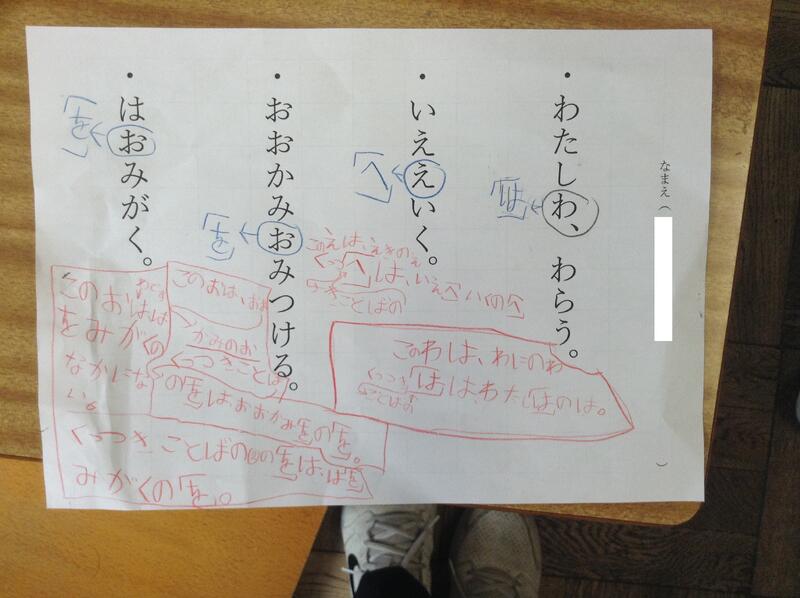 なまえ（　）
・わたしわ、わらう。
「は」
・いええいく。
「へ」
このえは、えきのえ
くっつきことばの「へ」は、いえへいくのへ
このわは、わにのわ
くっつきことばの「は」は、わたしはのは。
・おおかみおみつける。
「を」
このおは、おおかみのお
くっつきことばの「を」はおおかみをの「を」。
・はおみがく。
「を」
このおは
をみがくの
なかにな
い。
くっつきことばのの「を」は、はを
みがくの「を」。